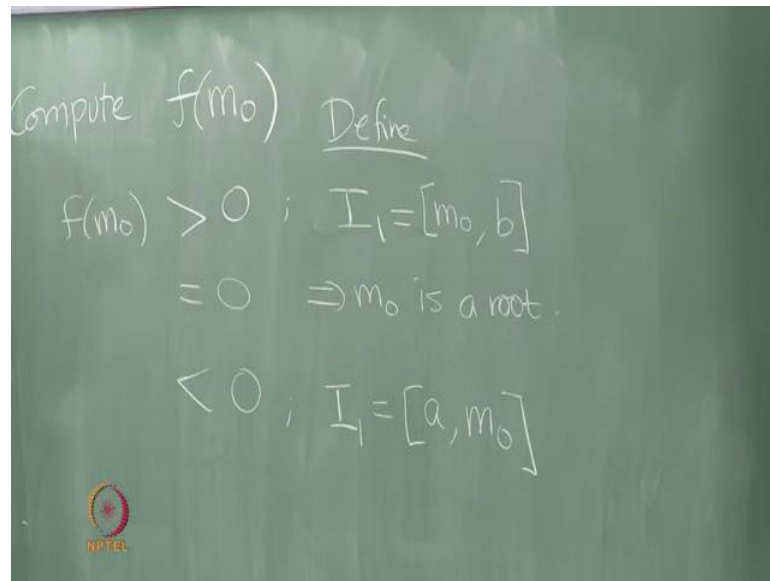 Compute f(m₀) Define
f(m₀) > 0 ; I₁ = [m₀, b]
= 0 ⇒ m₀ is a root.
< 0 ; I₁ = [a, m₀]
NPTEL